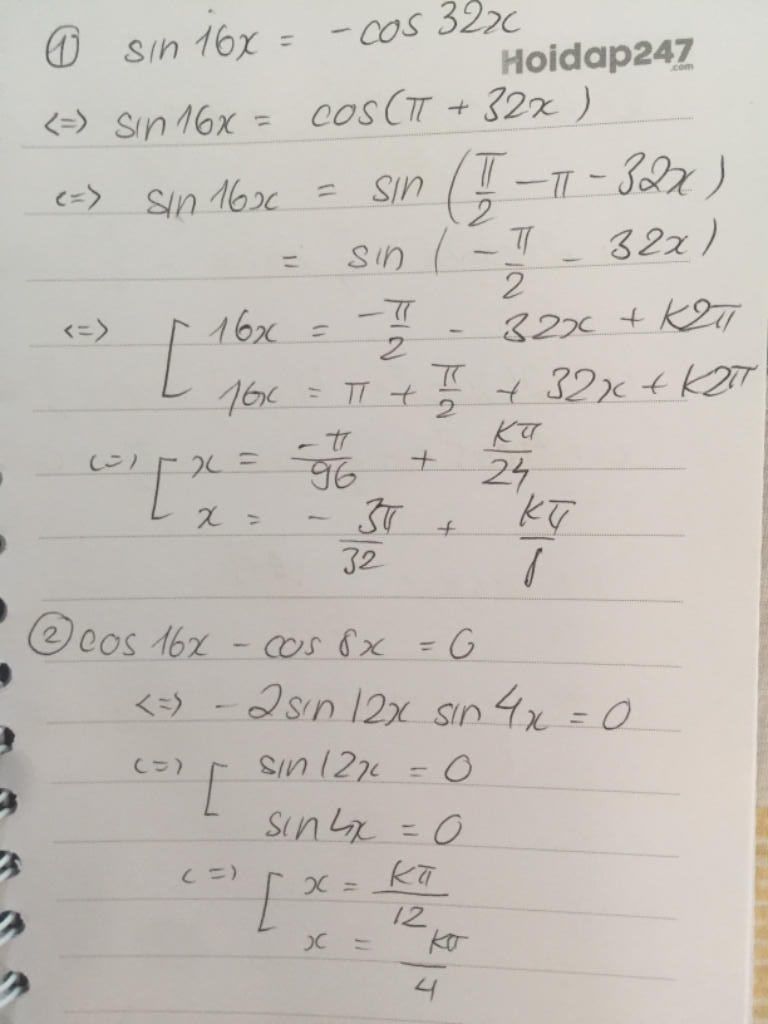 ① sin 16x = -cos 32x
Hoidap247
.com
<=> sin 16x = cos(π + 32x)
<=> sin 16x = sin (π/2 - π - 32x)
= sin (-π/2 - 32x)
<=> [ 16x = -π/2 - 32x + K2π
16x = π + π/2 + 32x + K2π
<=> [ x = -π/96 + Kπ/24
x = - 3π/32 + Kπ/8
② cos 16x - cos 8x = 0
<=> -2sin 12x sin 4x = 0
<=> [ sin 12x = 0
sin 4x = 0
<=> [ x = Kπ/12
x = Kπ/4